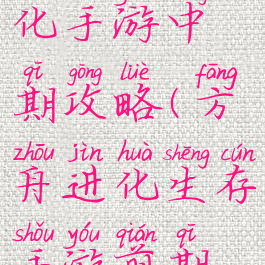 化手游中
qī gōng lüè fāng
期攻略(方
zhōu jìn huà shēng cún
舟进化生存
shǒu yóu qián qī
手游前期